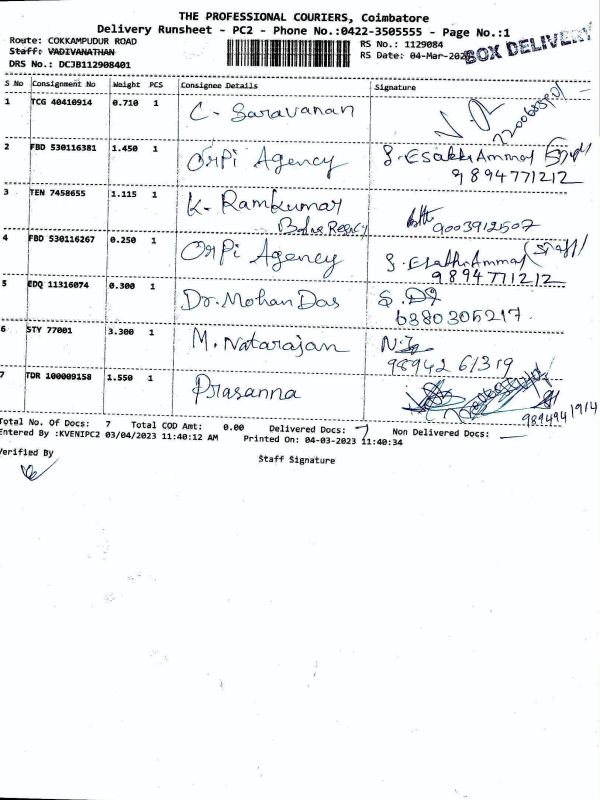 THE PROFESSIONAL COURIERS, Coimbatore
Delivery Runsheet - PC2 - Phone No.:0422-3505555 - Page No.:1
Route: COKKAMPUDUR ROAD
RS No.: 1129084
BOX DELIVERY
Staff: VADIVANATHAN
RS Date: 04-Mar-202
DRS No.: DCJB112908401
S No Consignment No Weight PCS Consignee Details Signature
1 TCG 40410914 0.710 1 C. Saravanan
2 FBD 530116381 1.450 1 OrPi Agency S. EsakkiAmmal
9894771212
3 TEN 7458655 1.115 1 K. Ramkumar
9003912507
4 FBD 530116267 0.250 1 OrPi Agency S. EsakkiAmmal (Staff)
9894771212
5 EDQ 11316074 0.300 1 Dr. Mohan Das
6380305217.
6 STY 77001 3.300 1 M. Natarajan
98942 61319
7 TDR 100009158 1.550 1 Prasanna
9894941914
Total No. Of Docs: 7 Total COD Amt: 0.00 Delivered Docs: 7 Non Delivered Docs: —
Entered By :KVENIPC2 03/04/2023 11:40:12 AM Printed On: 04-03-2023 11:40:34
Verified By
Staff Signature